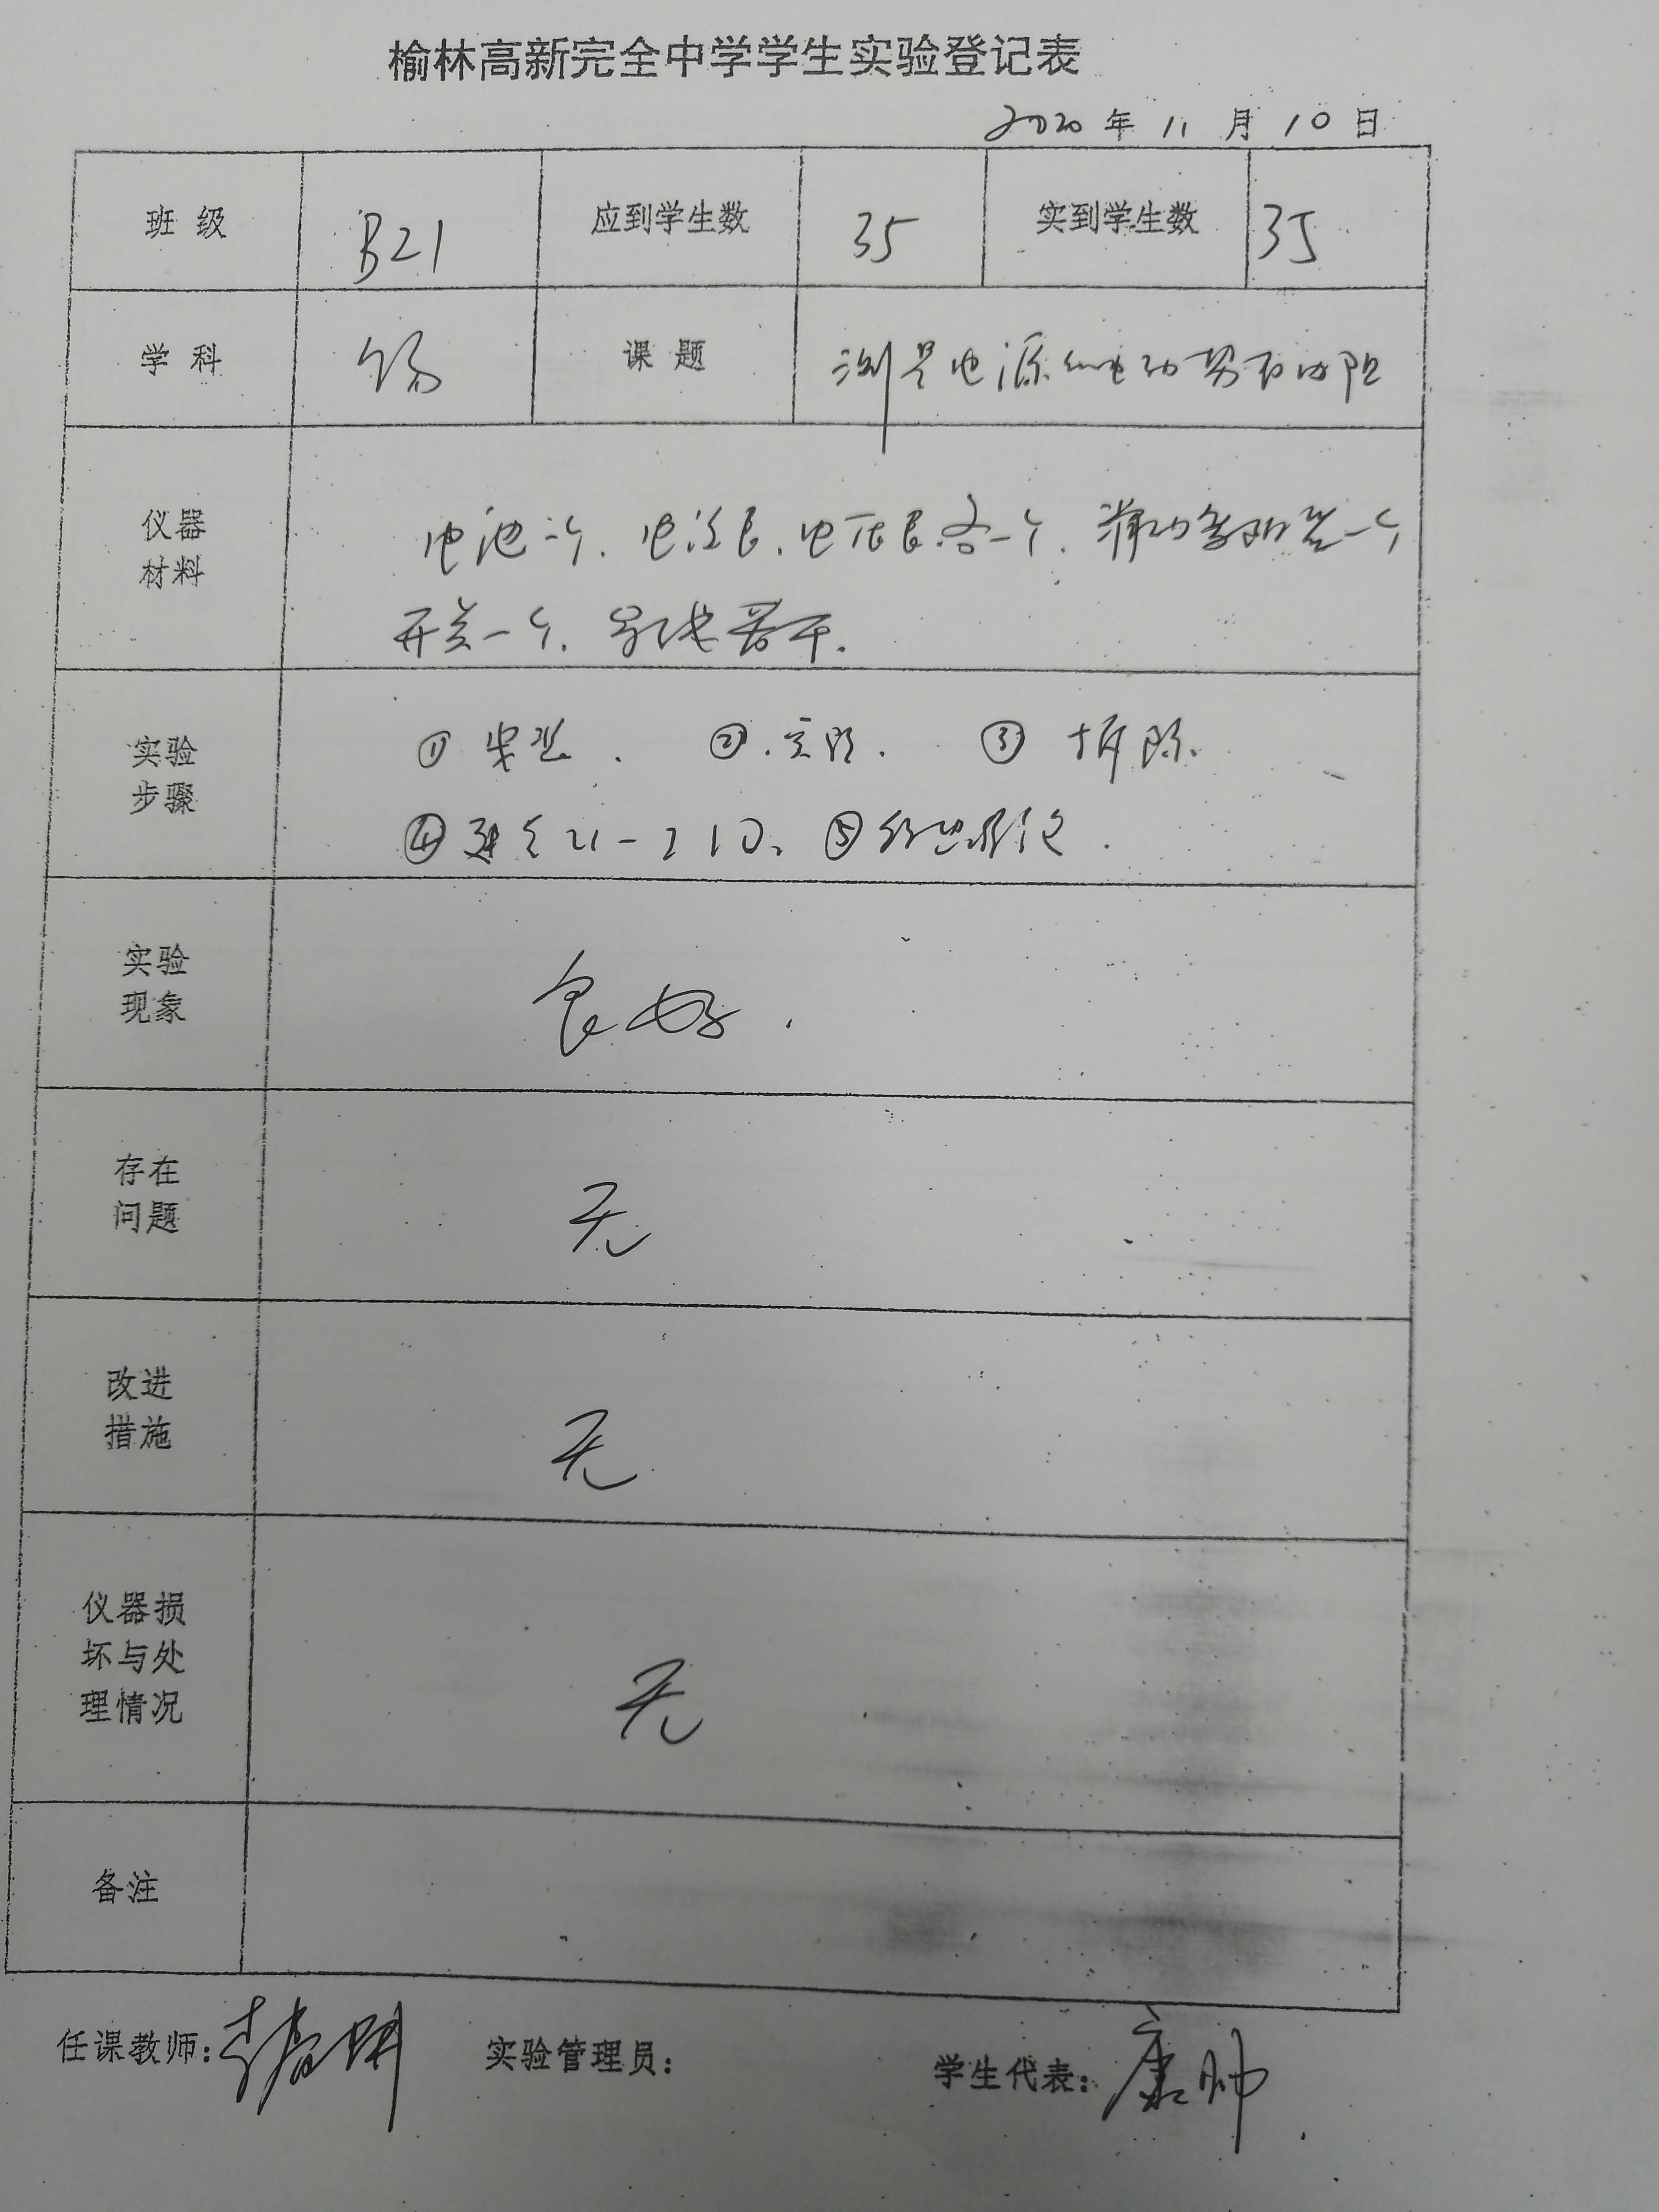 榆林高新完全中学学生实验登记表
2020年11月10日
班级 B21 应到学生数 35 实到学生数 35
学科 物 课题 测量电源的电动势和内阻
仪器材料
电池一个.电流表.电压表各一个.滑动变阻器一个
开关一个.导线若干.
实验步骤
① ② 实验. ③ 拆除.
④ ⑤
实验现象
良好.
存在问题
无
改进措施
无
仪器损坏与处理情况
无
备注
任课教师: 实验管理员: 学生代表:康帅